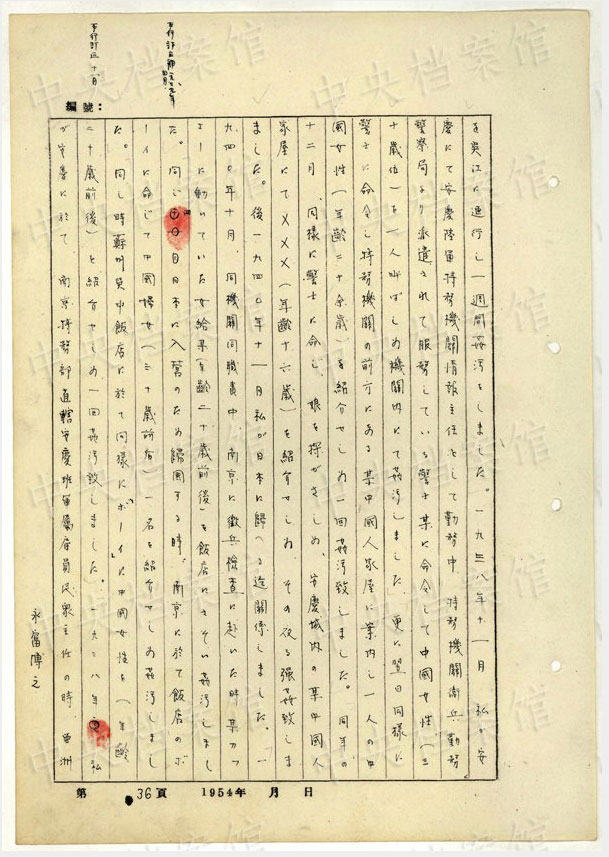 壱行訂正十一月
編號：
を吳江に連行し一週間姦污をしました。一九三八年十一月 私が安
慶にて安慶陸軍特務機關情報主任として勤務中、特務機關衛兵勤務
警察局より派遣されて服務している警士某に命令して中國女性（三
十歲位）を一人呼ばしめ機關內にて姦污しました。更に翌日同様に
警士に命令し特務機關の前方にある某中國人家屋に案內し一人の中
國女性（年齡二十余歲）を紹介せしめ一回姦污致しました。同年の
十二月、同様に警士に命じ、娘を探がさしめ、安慶城內の某中國人
家屋にて×××（年齡十六歲）を紹介せしめ、その夜る强姦致しま
ました。後一九四〇年十一月私が日本に歸へる迄關係しました。一
九四〇年十月、同機關同職責中、南京に徵兵檢查に赴いた時某カフ
ェーに動いていた女給某（年齡二十歲前後）を飯店にさそい姦污しまし
た。同じ 日本に入營のため歸國する時、南京に於て飯店のボ
ーイに命じて中國婦女（二十歲前后）一名を紹介せしめ姦污しまし
た。同じ時蘇州 飯店に於て同様にボーイに中國女性を（年齡
二十歲前後）を紹介せしめ一回姦污致しました。一九三八年 私
が安慶に於て 南京特務部直轄安慶班軍屬雇員民眾主任の時、亞洲
永富博之
第 36 頁 1954年 月 日
中央档案馆